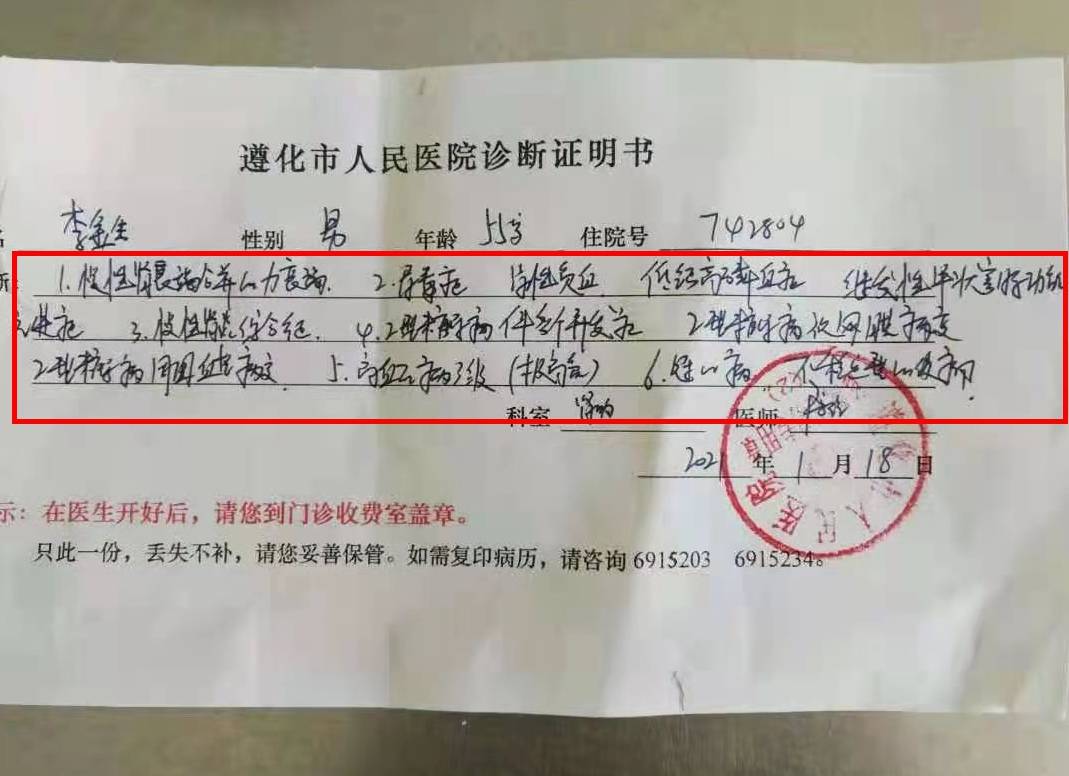 遵化市人民医院诊断证明书
李金生 性别 男 年龄 55岁 住院号 742804
1.慢性肾衰竭合并心力衰竭. 2.尿毒症 肾性贫血 低钙高磷血症 继发性甲状旁腺功能
亢进症 3.慢性肾炎综合征. 4.2型糖尿病伴多个并发症 2型糖尿病视网膜病变
2型糖尿病周围血管病变. 5.高血压病3级(极高危) 6.冠心病
科室 肾内 医师
2021年1月18日
示：在医生开好后，请您到门诊收费室盖章。
只此一份，丢失不补，请您妥善保管。如需复印病历，请咨询6915203 6915234。